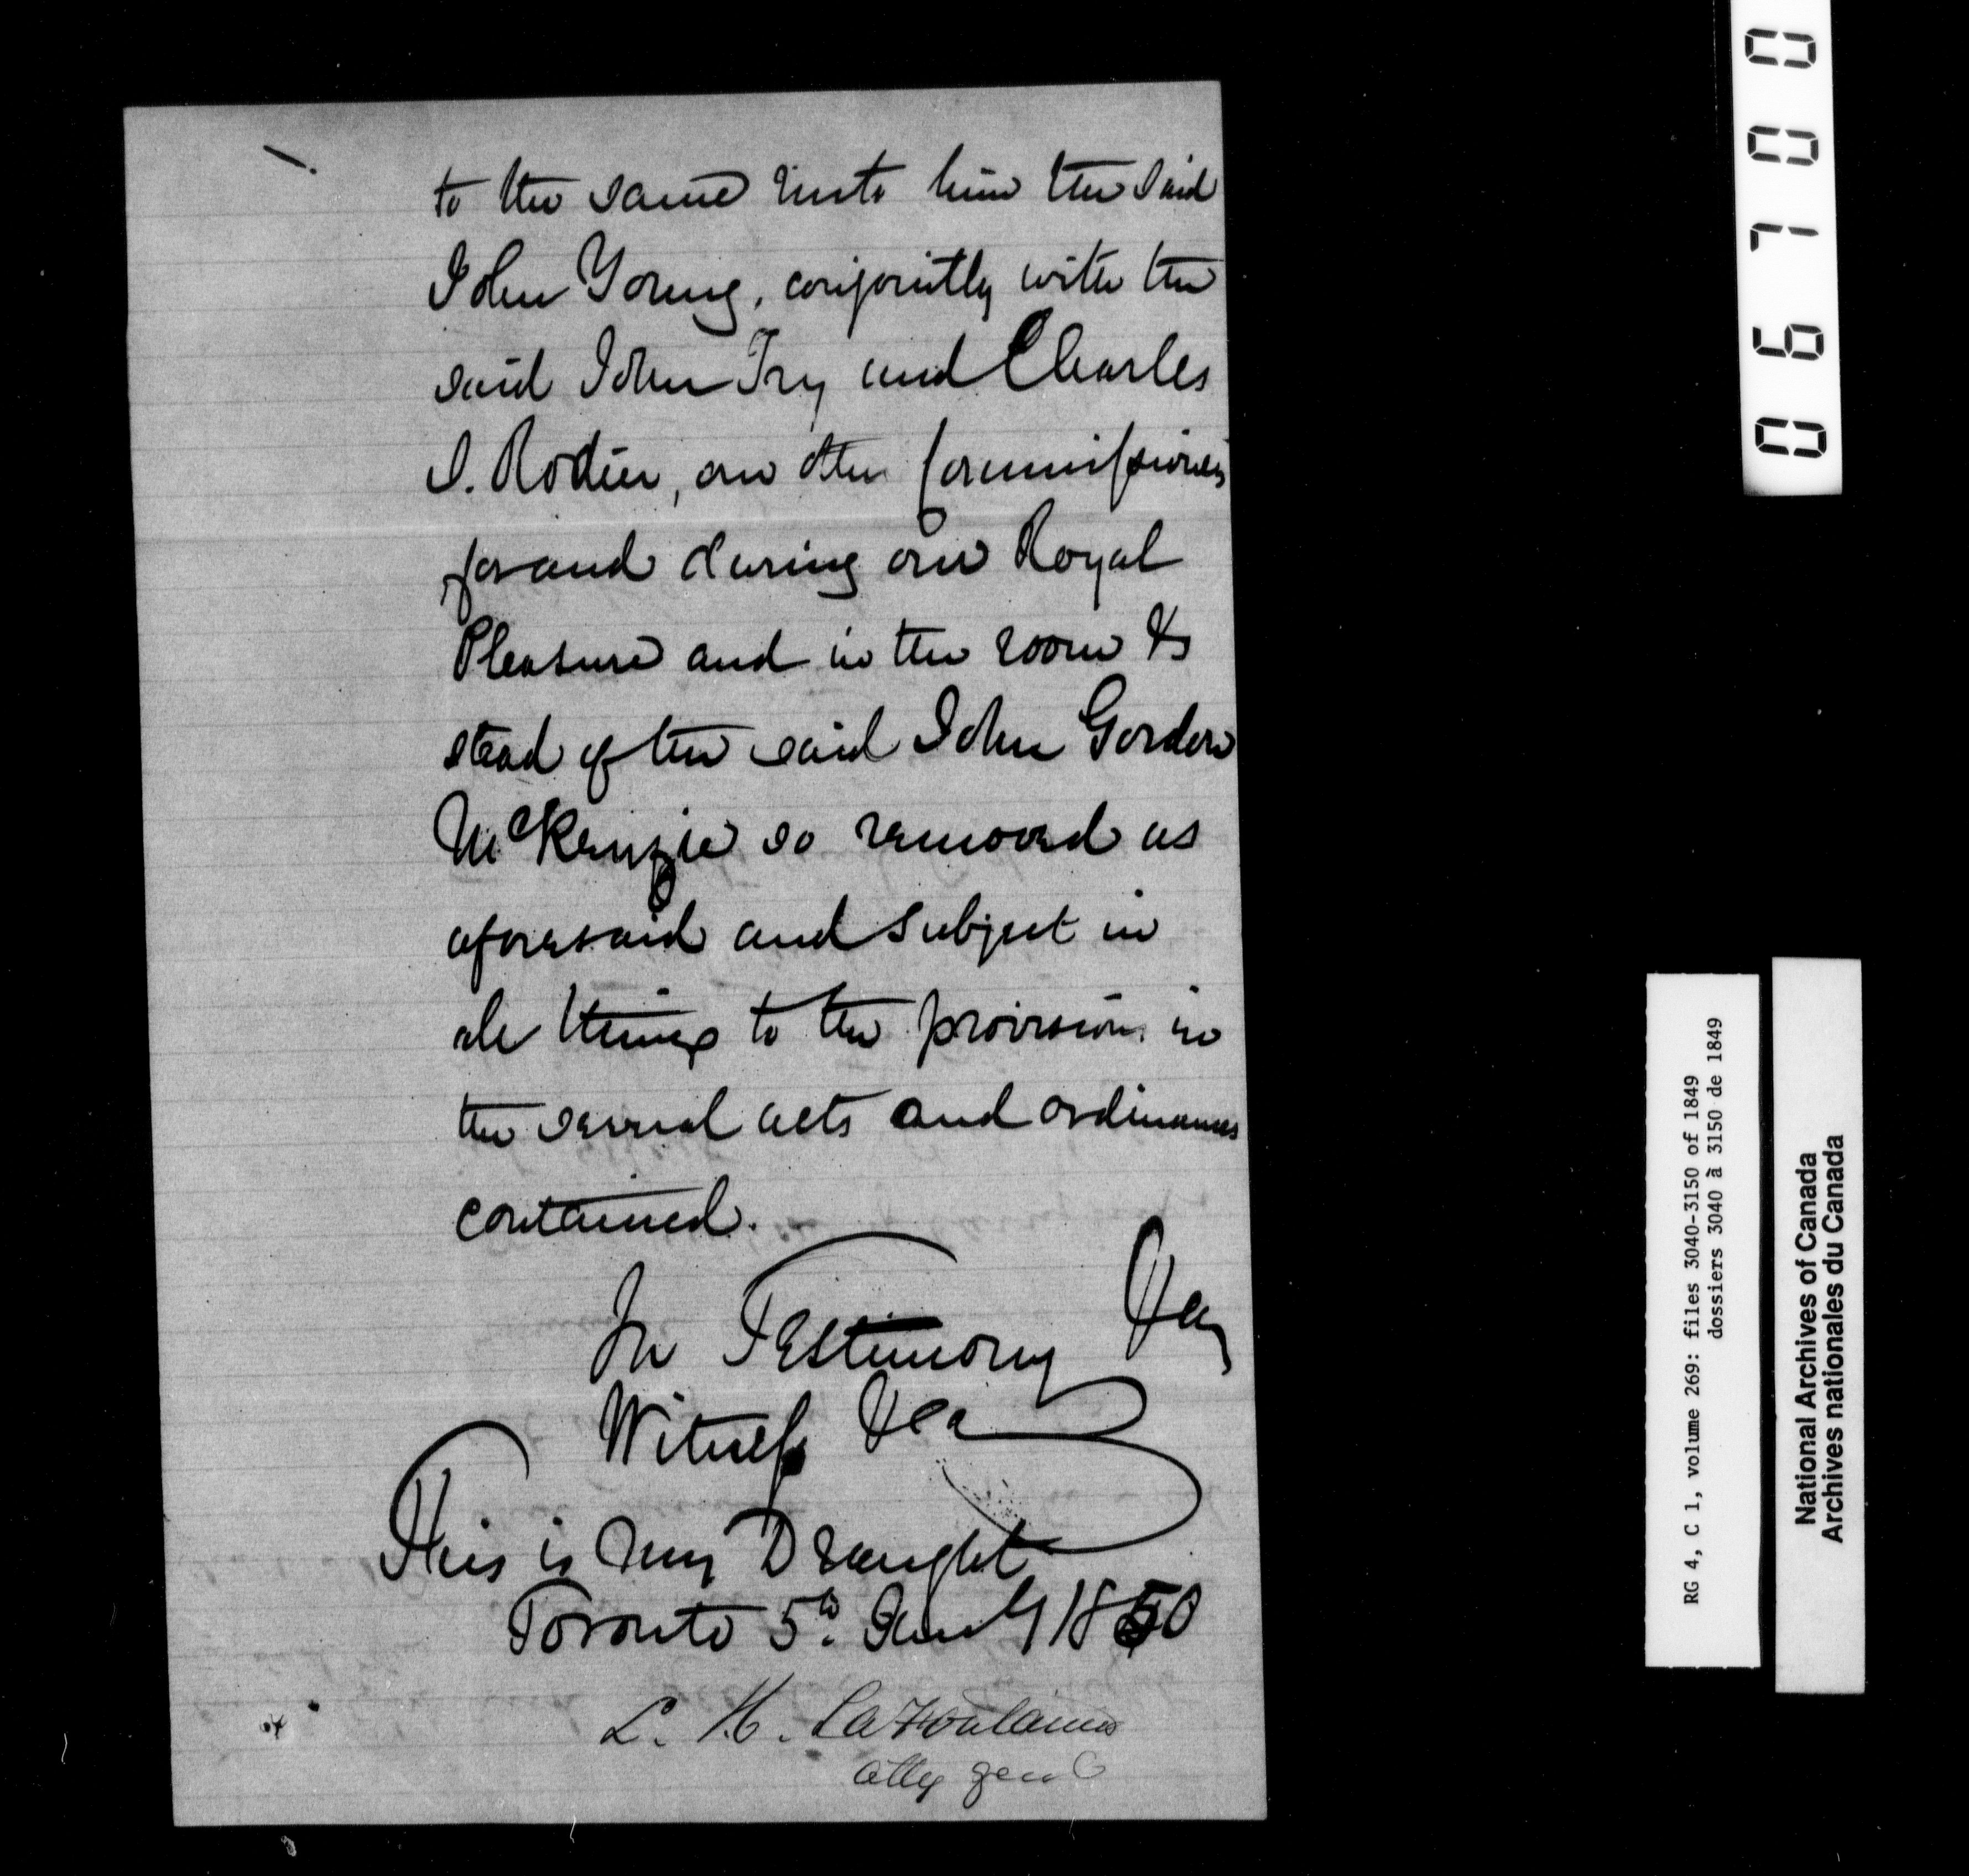 to the same unto him the said
John Young, conjointly with the
said John Try and Charles
S. Rodier, our other Commissioners
for and during our Royal
Pleasure and in the room &
stead of the said John Gordon
McKenzie so removed as
aforesaid and subject in
all things to the provisions in
the several acts and ordinances
contained.
In Testimony &ca
Witness &ca
This is my Draught
Toronto 5th Jany 1850
L. H. LaFontaine
atty genl
06700
RG 4, C 1, volume 269: files 3040-3150 of 1849
dossiers 3040 à 3150 de 1849
National Archives of Canada
Archives nationales du Canada